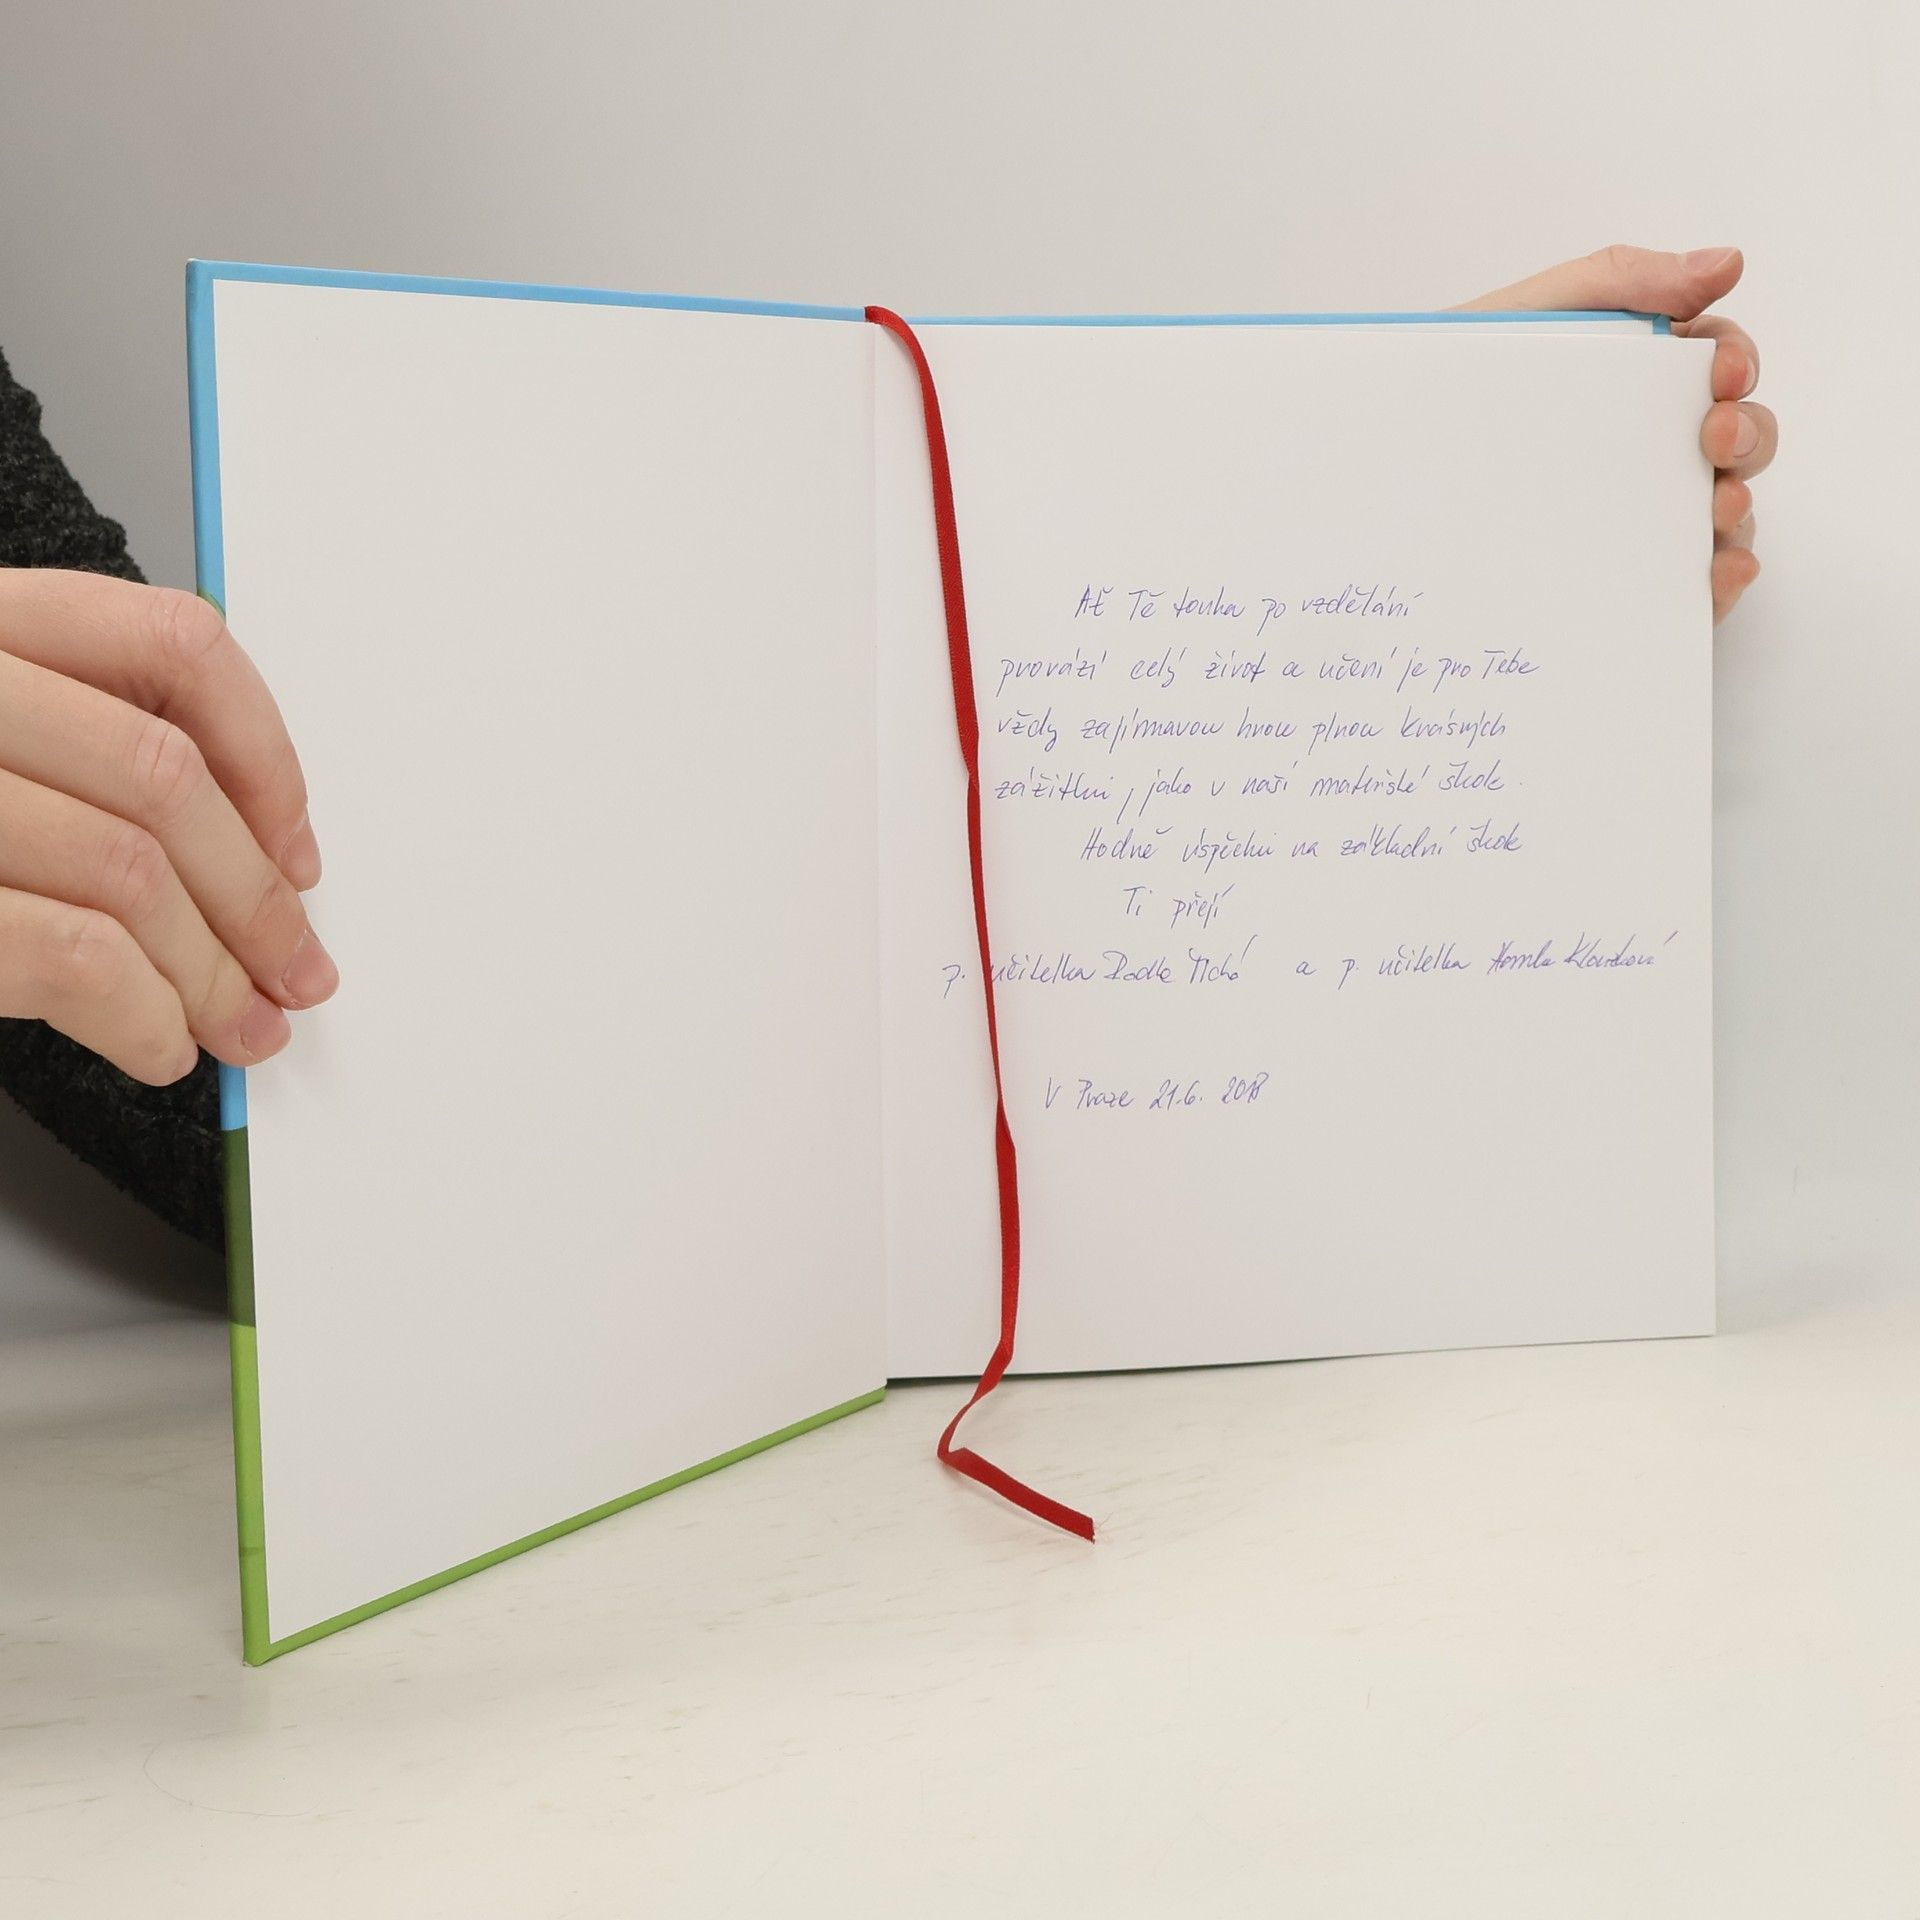 Ať Tě touha po vzdělání
provází celý život a učení je pro Tebe
vždy zajímavou hrou plnou krásných
zážitků, jako v naší mateřské škole.
Hodně úspěchů na základní škole
Ti přejí
p. učitelka Tichá a p. učitelka
V Praze 21.6. 2018